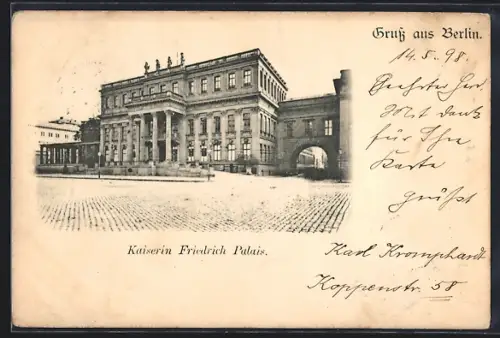 Gruß aus Berlin.
14.5.98.
Geehrter Herr
Mit Dank
für Ihre
Karte
grüßt
Karl Kromphardt
Koppenstr. 58
Kaiserin Friedrich Palais.